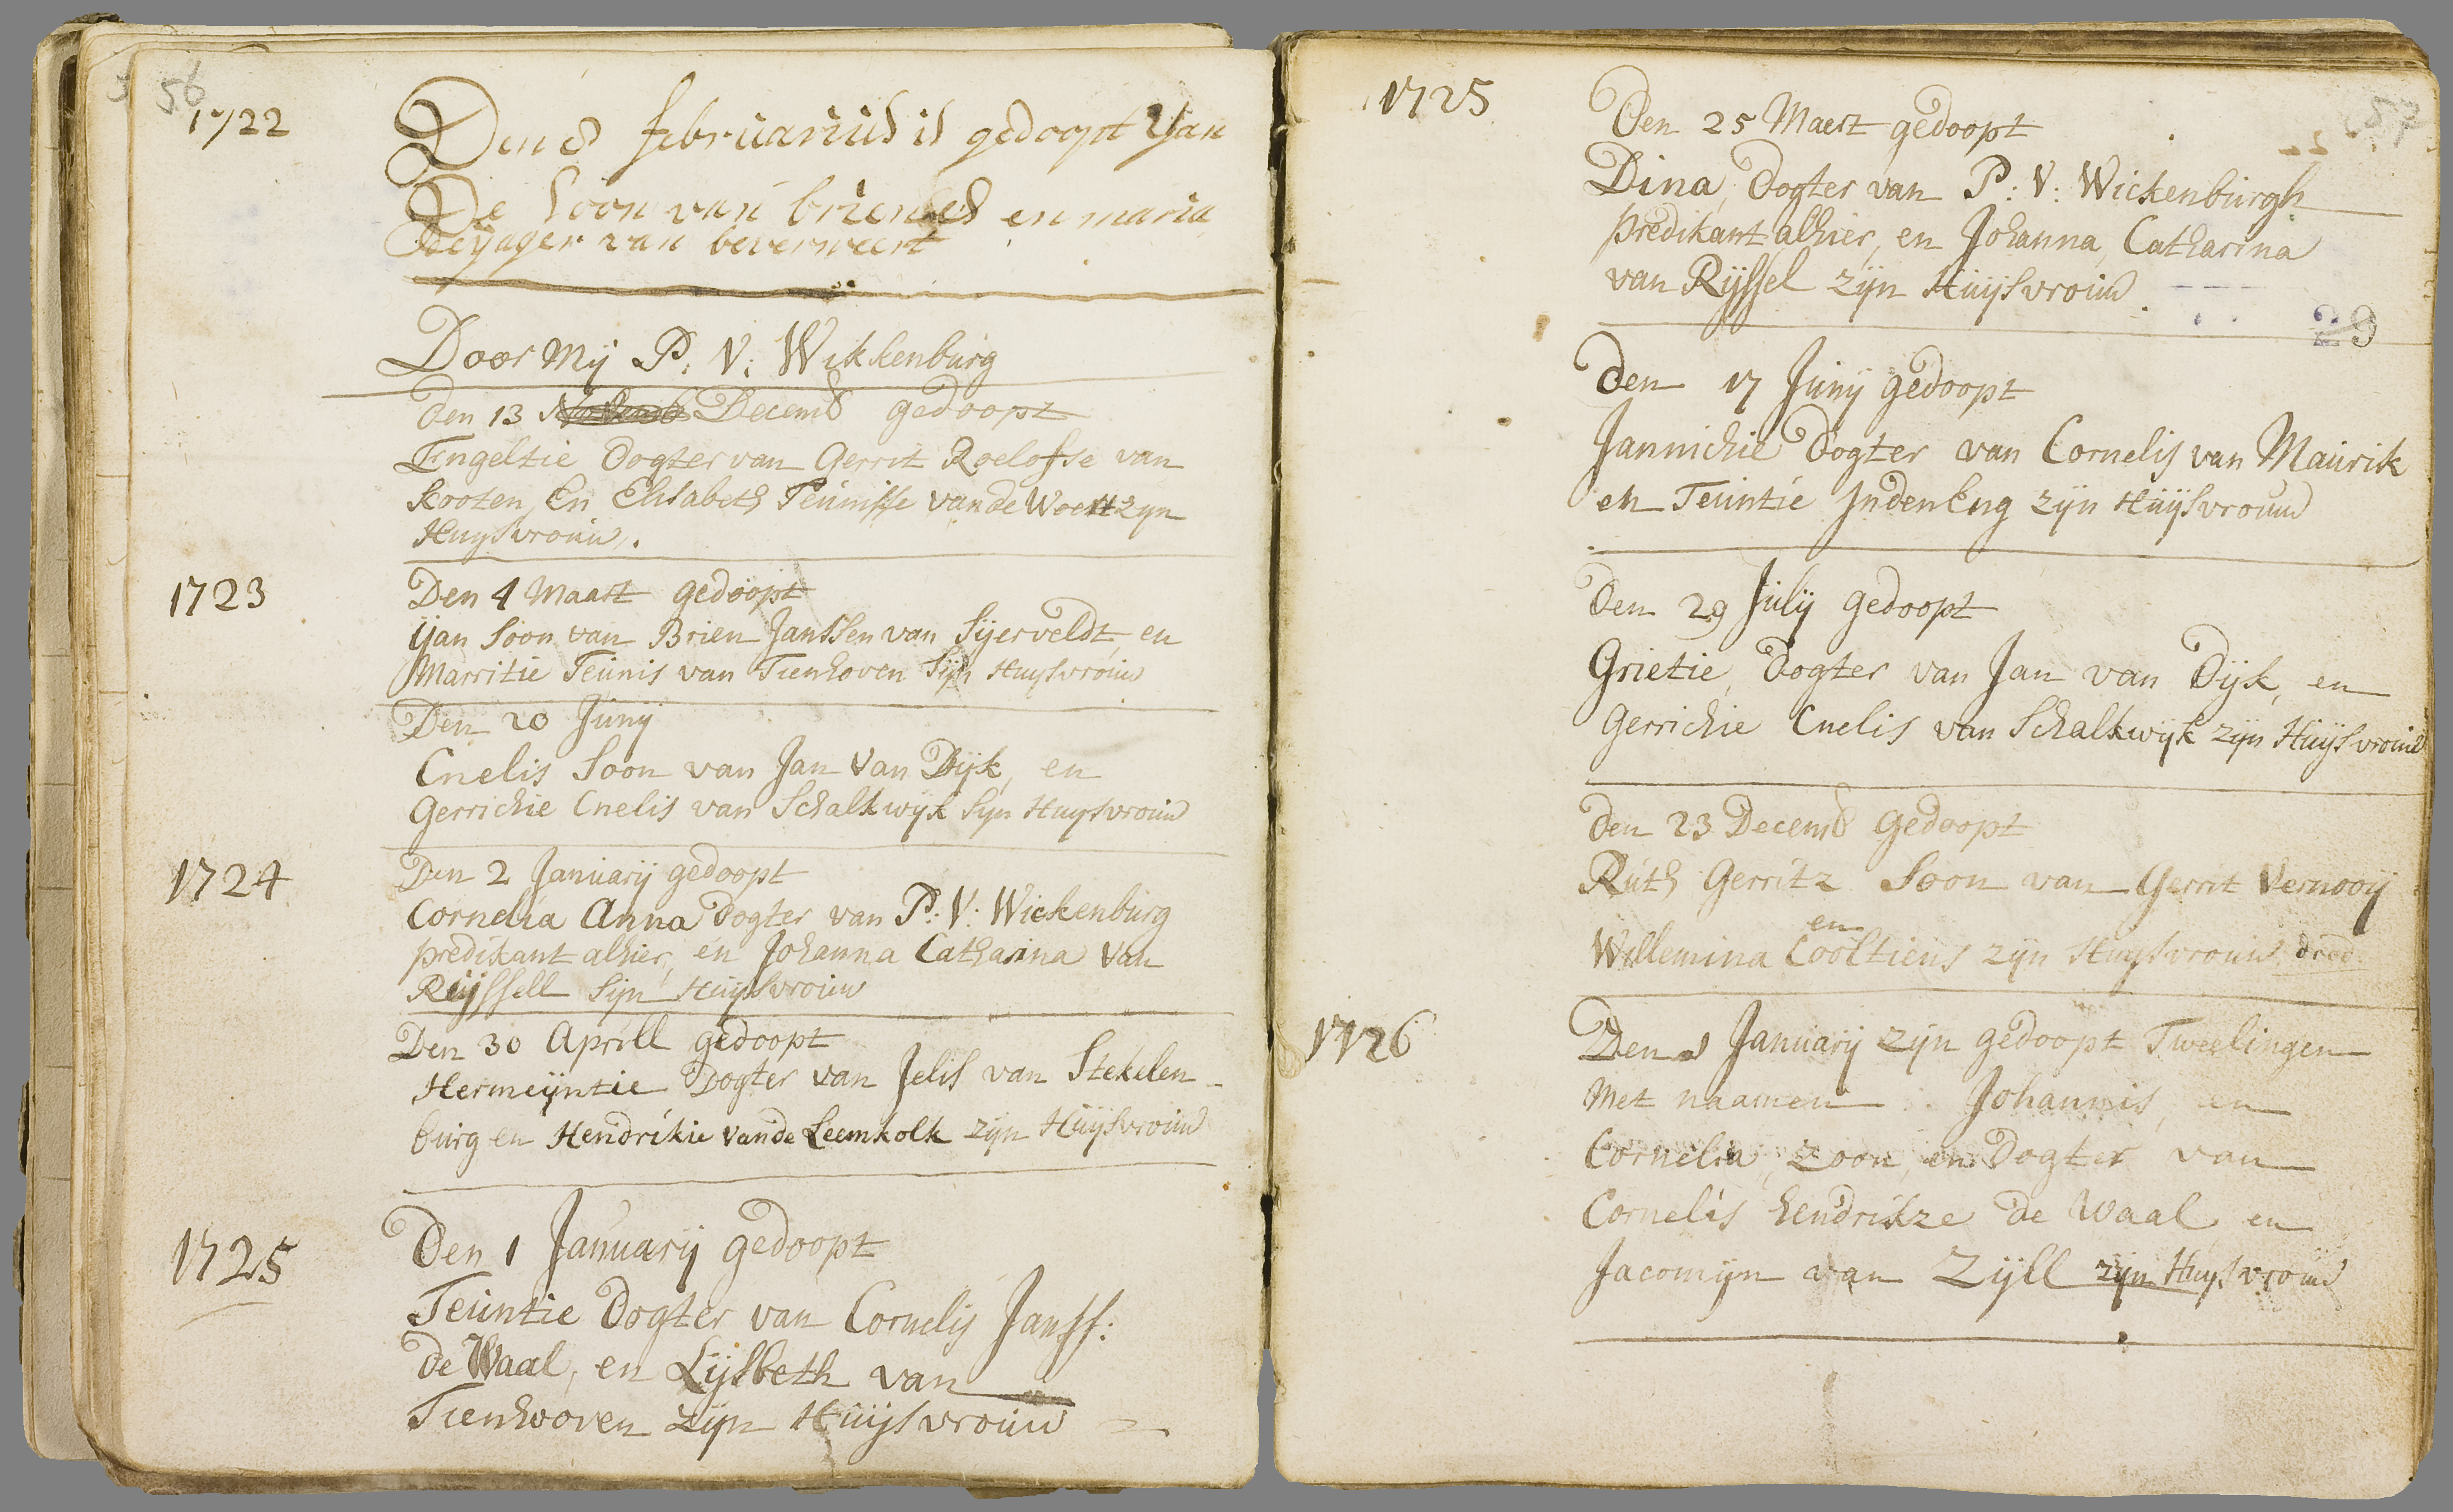 56
1722
Den 8 februariüs is gedoopt Yan
De Soon van brienes en maria
van beverweert
Door Mij P: V: Wikkenburg
Den 13 Novemb Decemb gedoopt
Engeltie Dogter van Gerrit Roelofse van
Scooten, En Elisabeth Teunisse van de Woert zyn
Huysvrouw.
1723
Den 4 Maart gedoopt
ijan Soon van Brien Janssen van Sijerveldt, en
Marritie Teunis van Tienhoven Sijn Huysvrouw
Den 20 Junij
Cnelis Soon van Jan Van Dijk, en
Gerrichie Cnelis van Schalkwyk Syn Huysvrouw
1724
Den 2 Januarij gedoopt
Cornelia Anna Dogter van P: V: Wickenburg
predikant alhier, en Johanna Catharina Van
Reijssell Sijn Huijsvrouw
Den 30 Aprill gedoopt
Hermeijntie Dogter van Jelis van Stekelen-
burg en Hendrikie Vande Leemkolk zijn Huijsvrouw
1725
Den 1 Januarij gedoopt
Teuntie Dogter van Cornelis Janss:
de Waal, en Lijsbeth van
Tienhooven zijn Huijsvrouw
57
1725
Den 25 Maert gedoopt
Dina, Dogter van P: V: Wickenburgh
predikant alhier, en Johanna, Catharina
van Rijssel zijn Huijsvrouw
29
Den 17 Junij gedoopt
Jannichie Dogter van Cornelis van Maurik
en Teuntie Inden Eng zijn Huijsvrouw
Den 29 Julij gedoopt
Grietie, Dogter van Jan van Dijk, en
Gerrichie Cnelis van Schalkwijk zijn Huijsvrouw
Den 23 Decemb gedoopt
Ruth Gerritz Soon van Gerrit Vernooij
en
Willemina Cooltiens zijn Huysvrouw
1726
Den 1 Januarij zijn gedoopt Tweelingen
Met naamen Johannis, en
Cornelia, zoon, en Dogter van
Cornelis hendrikze de Waal en
Jacomijn van Zijll zijn Huysvrouw